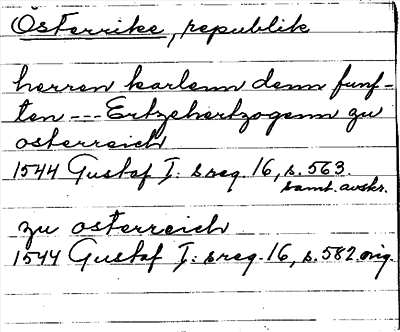 Österrike, republik
herren karlenn denn funf-
ten --- Ertzehertzogenn zu
osterreich
1544 Gustaf I:s reg. 16, s. 563.
samt. avskr.
zu osterreich
1544 Gustaf I:s reg. 16, s. 582 orig.